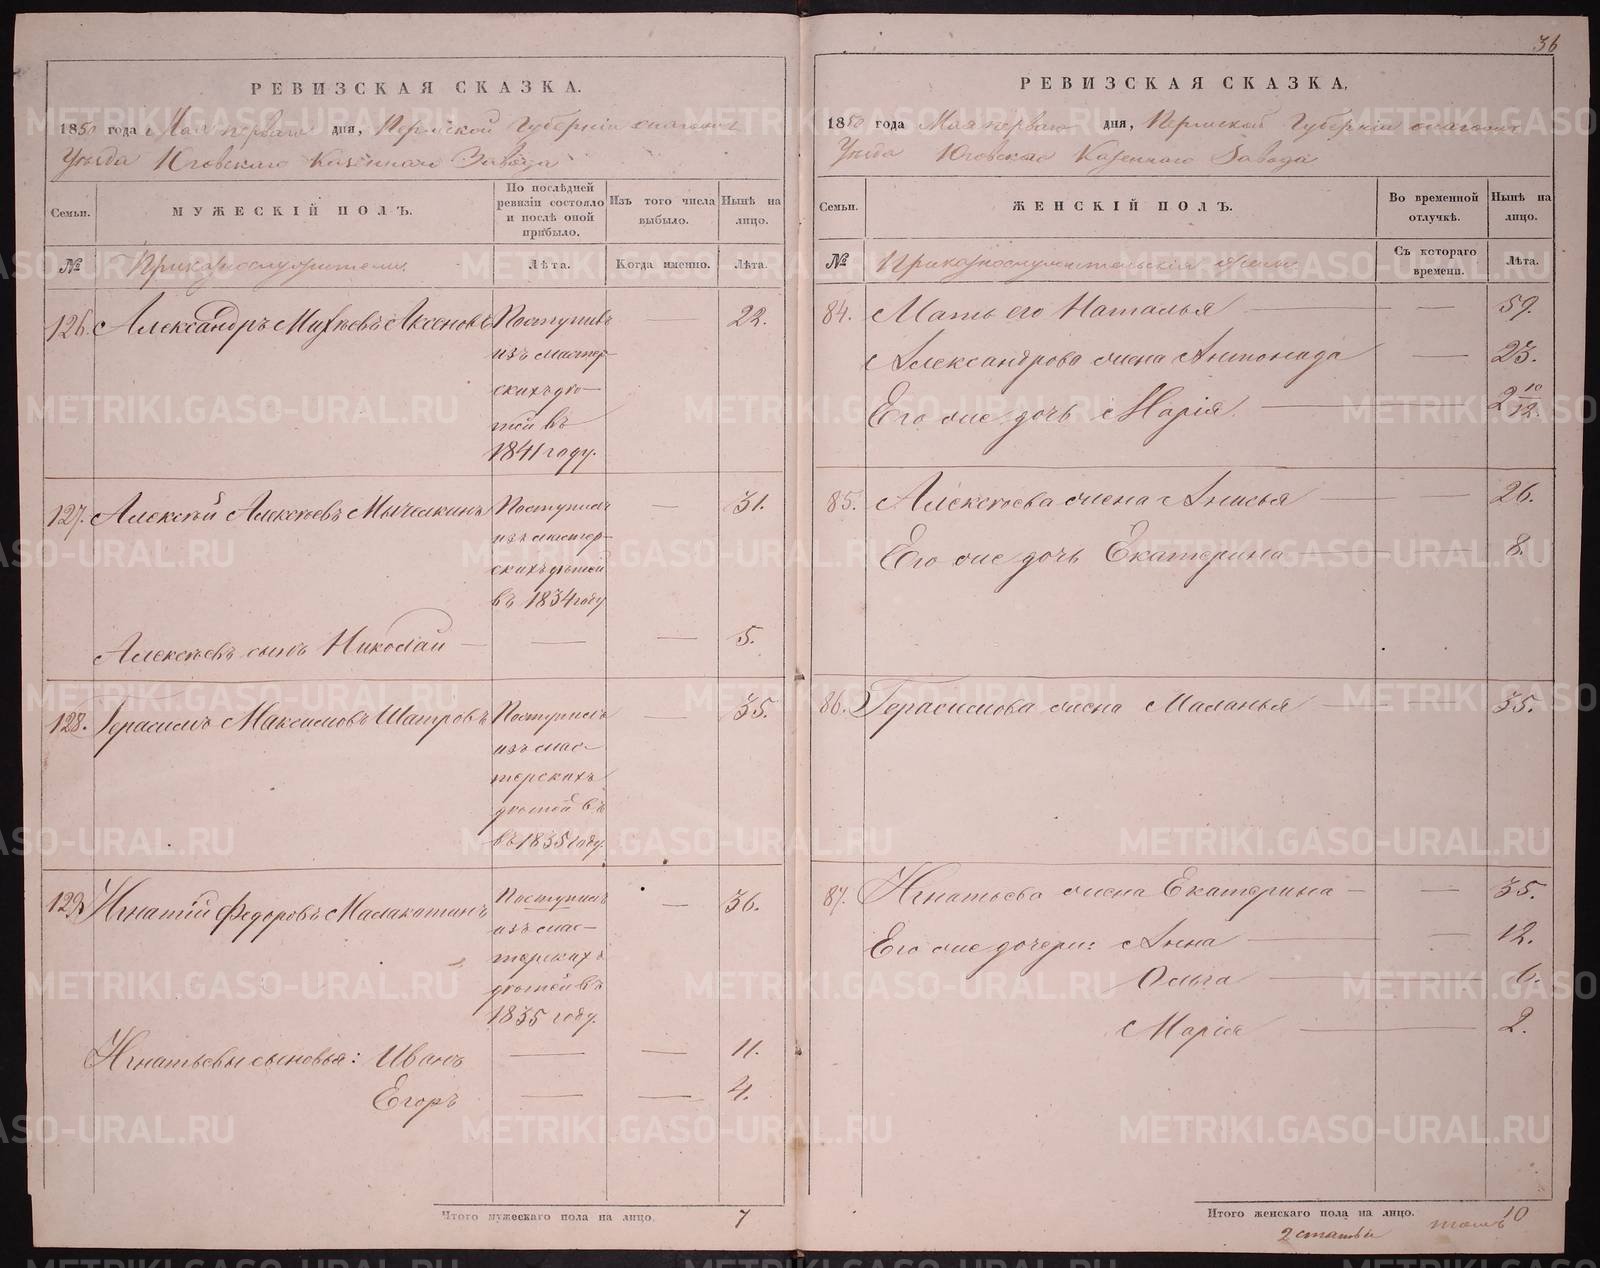 36
РЕВИЗСКАЯ СКАЗКА.
1850 года Мая перваго дня, Пермской Губерніи
Уѣзда Юговскаго Казеннаго Завода
Семьи.
МУЖЕСКІЙ ПОЛЪ.
По послѣдней ревизіи состояло и послѣ оной прибыло.
Изъ того числа выбыло.
Нынѣ на лицо.
№
Приказнослужители
Лѣта.
Когда именно.
Лѣта.
126. Александръ Михѣевъ Аксеновъ Поступилъ — 22.
изъ мастер-
скихъ дѣ-
тей въ
1841 году.
127. Алексѣй Алексѣевъ Мычелкинъ Поступилъ — 31.
изъ мастер-
скихъ дѣтей
въ 1834 году
Алексѣевъ сынъ Николай — — — 5.
128. Герасимъ Максимовъ Шатровъ Поступилъ — 35.
изъ мас-
терскихъ
дѣтей въ
въ 1835 году.
129. Игнатій Федоровъ Малахатинъ Поступилъ — 36.
изъ мас-
терскихъ
дѣтей въ
1835 году.
Игнатьевы сыновья: Иванъ — — 11.
Егоръ — — 4.
Итого мужескаго пола на лицо. 7
РЕВИЗСКАЯ СКАЗКА,
1850 года Мая перваго дня, Пермской Губерніи
Уѣзда Юговскаго Казеннаго Завода
Семьи.
ЖЕНСКІЙ ПОЛЪ.
Во временной отлучкѣ.
Нынѣ на лицо.
№
Приказнослужительскія
Съ котораго времени.
Лѣта.
84. Мать его Наталья — — 59.
Александрова жена Антонида — 23.
Его же дочь Марія. — 2 10/12.
85. Алексѣева жена Анисья — — 26.
Его же дочь Екатерина — — 8.
86. Герасимова жена Маланья — — 35.
87. Игнатьева жена Екатерина — — 35.
Его же дочери: Анна — — 12.
Ольга — — 6.
Марія — 2.
Итого женскаго пола на лицо. 10
2 статьи
METRIKI.GASO-URAL.RU